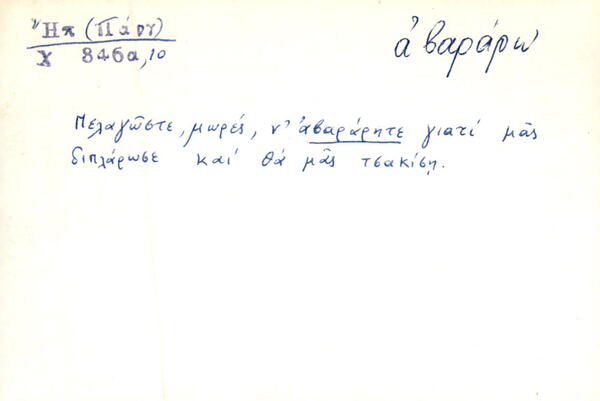 Ἠπ (Πάργ)
ἀβαράρω
Χ 846α, 10
Πελαγῶστε, μωρές, ν' ἀβαράρητε γιατί μᾶς
διπλάρωσε καί θά μᾶς τσακίσῃ.